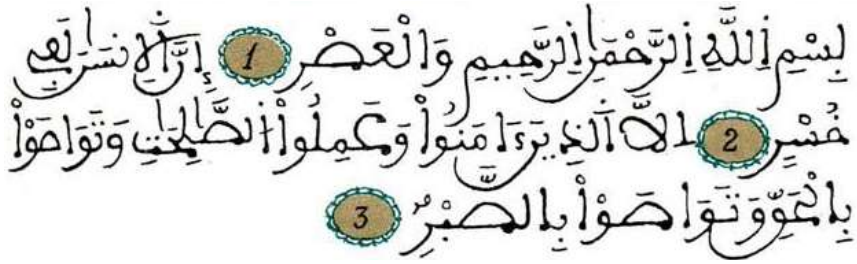 بِسْمِ اِللَّهِ اِلرَّحْمَٰنِ اِلرَّحِيمِ وَالْعَصْرِ 1 إِنَّ اَلِانسَٰنَ لَفِے
خُسْرٍ 2 اِلَّا اَلذِينَ ءَامَنُواْ وَعَمِلُواْ اُلصَّٰلِحَٰتِ وَتَوَاصَوْاْ
بِالْحَقِّ وَتَوَاصَوْاْ بِالصَّبْرِ 3